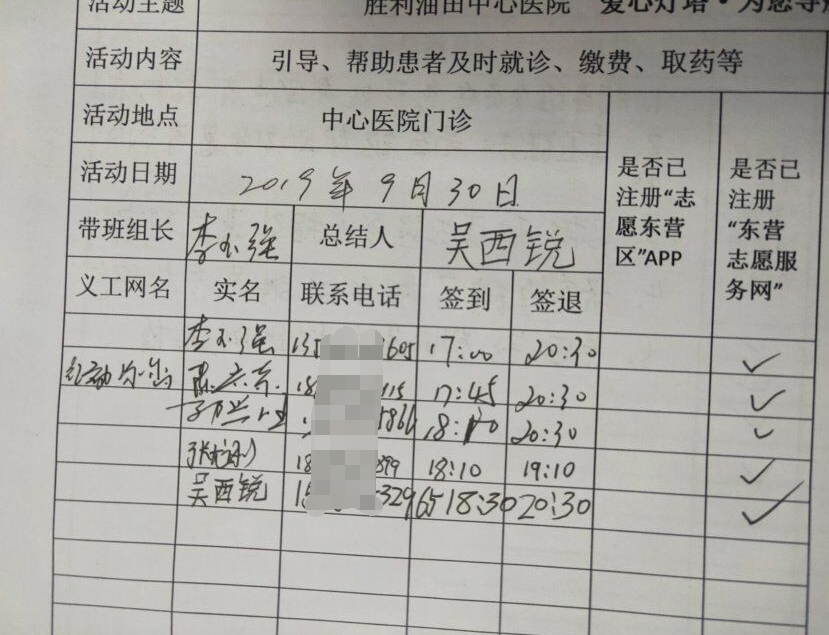 活动主题 胜利油田中心医院 "爱心灯塔·为您导
活动内容 引导、帮助患者及时就诊、缴费、取药等
活动地点 中心医院门诊
活动日期 2019年9月30日
是否已注册"志愿东营区"APP
是否已注册"东营志愿服务网"
带班组长 李 强 总结人 吴西锐
义工网名 实名 联系电话 签到 签退
李 强 135 605 17:00 20:30 ✓
18 115 17:45 20:30 ✓
1 5866 18:10 20:30 ✓
张 18 399 18:10 19:10 ✓
吴西锐 15 32965 18:30 20:30 ✓